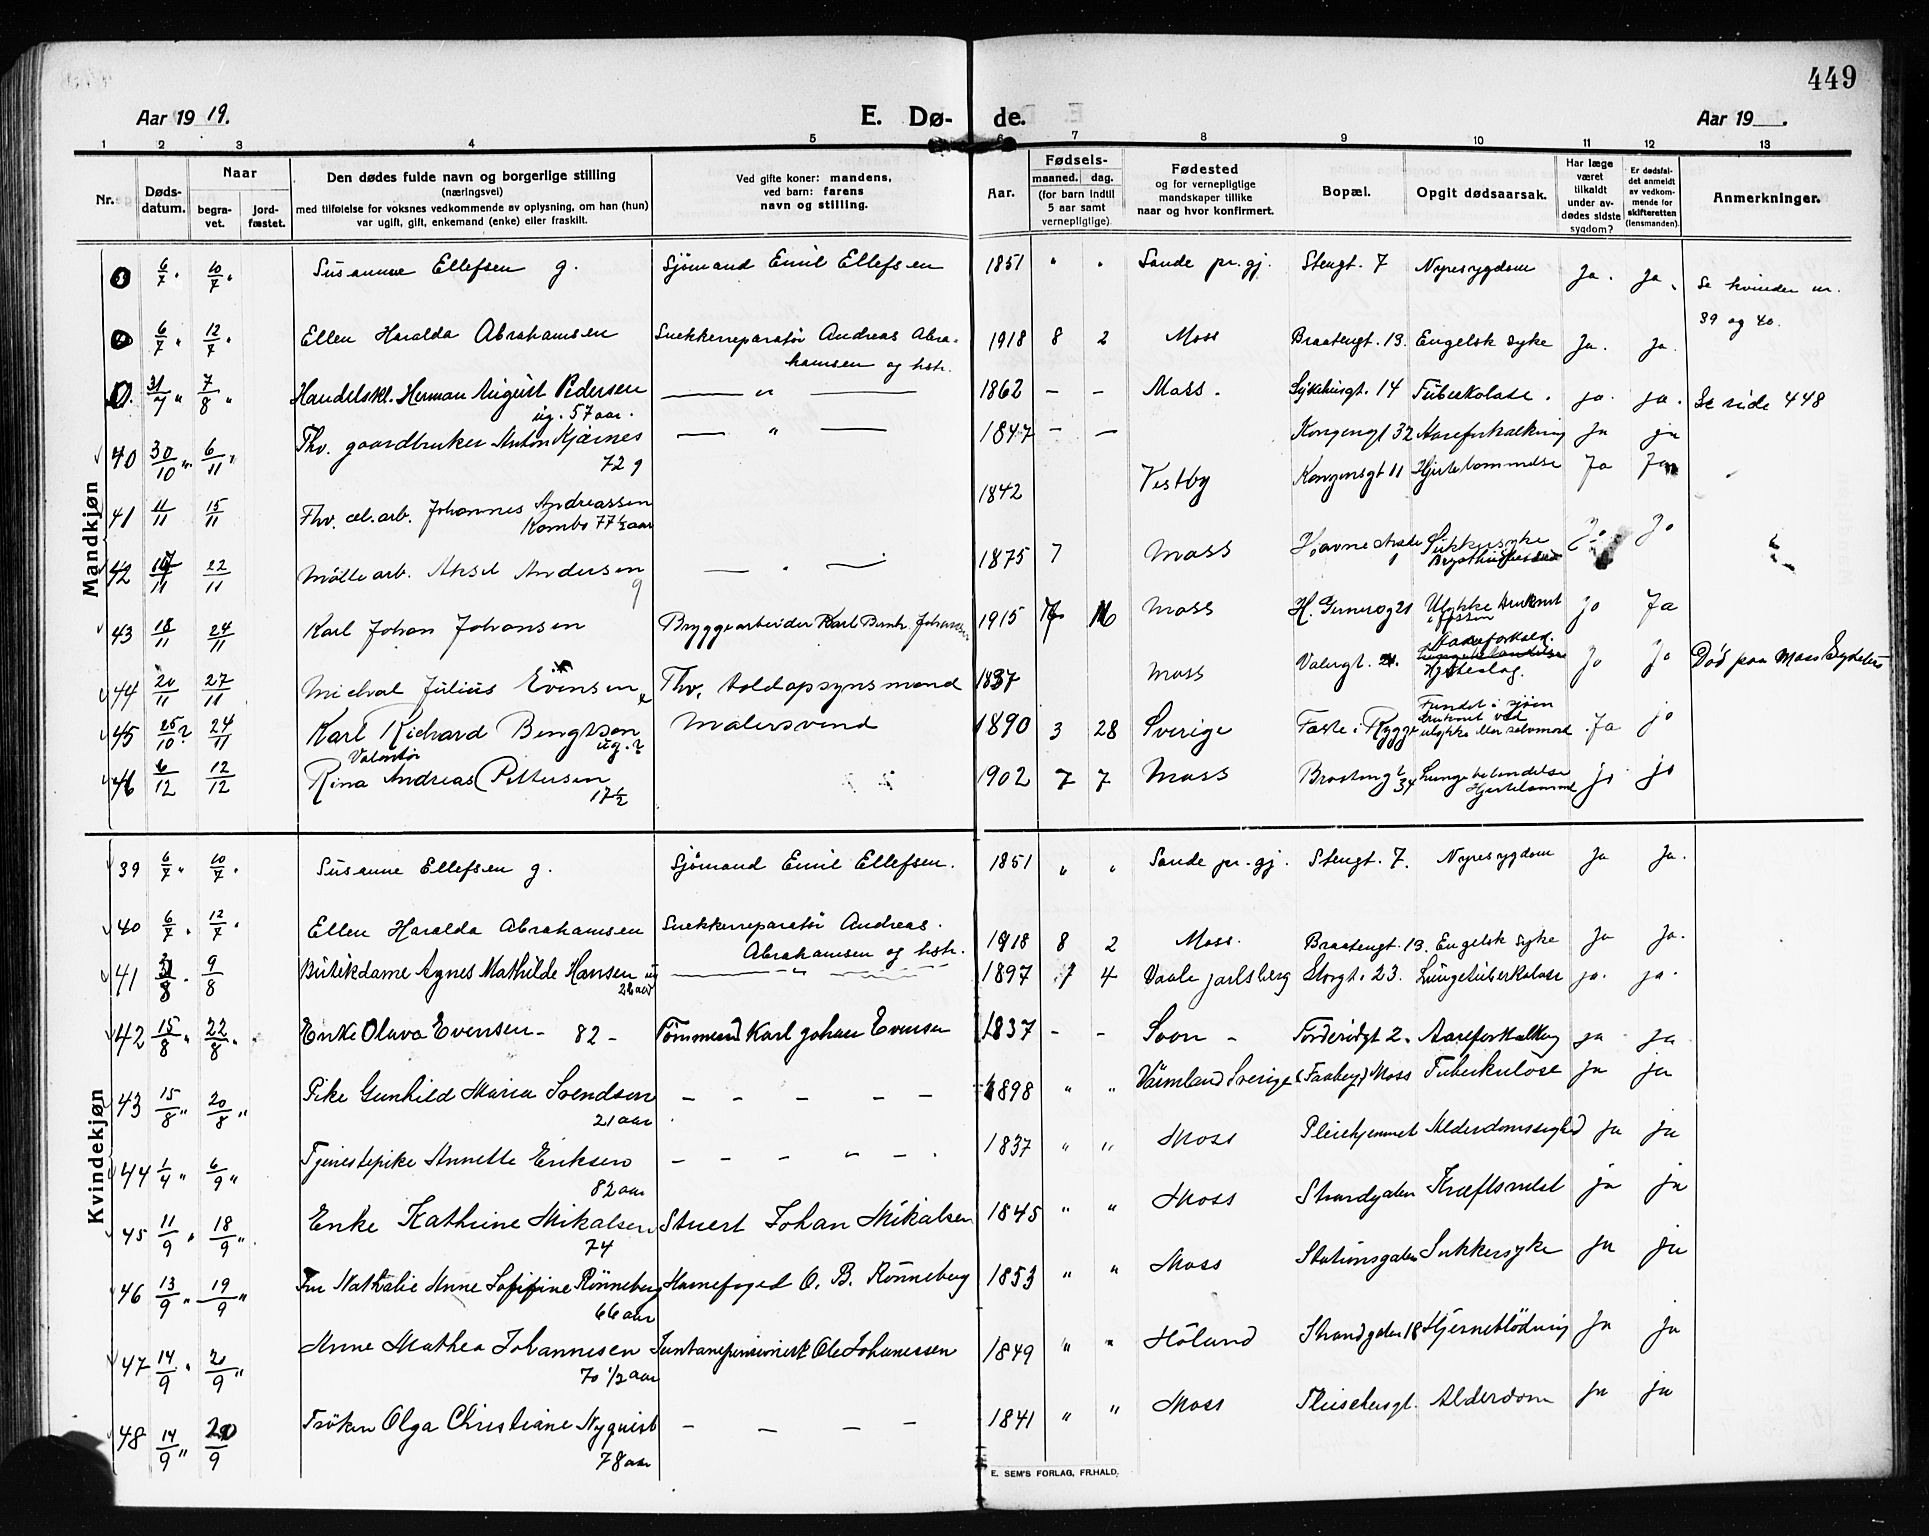 449
Aar 1919.
E. Dø- de.
Aar 19 .
1 2 3 4 5 6 7 8 9 10 11 12 13
Nr. Døds-datum. Naar begra-vet. jord-fæstet. Den dødes fulde navn og borgerlige stilling (næringsvei) med tilføielse for voksnes vedkommende av oplysning, om han (hun) var ugift, gift, enkemand (enke) eller fraskilt. Ved gifte koner: mandens, ved barn: farens navn og stilling. Aar. Fødsels- maaned. dag. (for barn indtil 5 aar samt vernepligtige). Fødested og for vernepligtige mandskaper tillike naar og hvor konfirmert. Bopæl. Opgit dødsaarsak. Har læge været tilkaldt under av-dødes sidste sygdom? Er dødsfal-det anmeldt av vedkom-mende for skifteretten (lensmanden). Anmerkninger.
Mandkjøn
6/7 " 10/7 " Susanne Ellefsen g. Sjømand Emil Ellefsen 1851 " " Sande pr. gj. Stengt. 7 Nyresygdom Ja. Ja. Se kvinder nr. 39 og 40.
6/7 " 12/7 " Ellen Haralda Abrahamsen Snekkerreparatør Andreas Abra-hamsen og hstr. 1918 8 2 Moss Braatengt. 13. Engelsk syke Ja. Ja.
31/7 " 7/8 " Handelskl. Herman August Pedersen ug. 57 aar. — " — 1862 – – Moss. Sykehusgt. 14 Tuberkolose. ja. ja. Se side 448
40 30/10 " 6/11 " Fhv. gaardbruker Anton Kjærnes 72 g — " — 1847 – – Kongengt 32 Aareforkalkning Ja ja
41 11/11 15/11 Fhv. arb. Johannes Andreassen Kambo 77 1/2 aar 1842 Vestby Kongensgt 11 Hjertelammelse Ja Ja
42 22/11 Mølle arb. Aksel Andersen g — " — 1875 7 Moss Sukkersyke Jo
43 18/11 24/11 Karl Johan Johansen Bryggearbeider Karl Johansen 1915 16 Moss H. Gernersgt 21 Ulykke druknet Jo Ja
44 20/11 27/11 Michal Julius Evensen e Fhv. toldopsynsmand 1837 Moss Valergt. Aareforkalk. Hjerteslag. Jo Jo Død paa Moss Sykehus
45 25/10 ? 24/11 Karl Richard Bengtson ug. ? Malersvend 1890 3 28 Sverige Faste i Rygge Fundet i sjøen druknet ved ulykke eller selvmord Ja jo
46 6/12 12/12 Rina Valentin Andreas Pettersen 17 1/2 1902 7 7 Moss Braatengt 34 Lungebetendelse Hjertelammelse jo jo
Kvindekjøn
39 6/7 " 10/7 " Susanne Ellefsen g. Sjømand Emil Ellefsen. 1851 " " Sande pr. gj. Stengt. 7. Nyresygdom Ja Ja.
40 6/7 " 12/7 " Ellen Haralda Abrahamsen Snekkerreparatør Andreas Abrahamsen og hstr. 1918 8 2 Moss. Braatengt. 13. Engelsk syke Ja Ja.
41 9/8 Butikdame Agnes Mathilde Hansen ug 22 aar — " — 1897 7 4 Vaale jarlsberg Storgt. 23. Lungetuberkolose ja. ja.
42 15/8 " 22/8 " Enke Olava Evensen – 82 – Tømmerm Karl Johan Evensen 1837 – – Soon – 2. Aareforkalkng ja ja
43 15/8 " 20/8 " Pike Gunhild Maria Svendsen 21 aar – – – – – 1898 " " Värmland Sverige (Faaberg) Moss Tuberkulose ja ja
44 1/4 " 6/9 " Tjenestepike Annette Eriksen 82 aar – – – " – . 1837 " " Moss Pleiehjemmet Alderdomssvghed ja ja
45 11/9 " 18/9 " Enke Kathrine Mikalsen 74 Stuert Johan Mikalsen 1845 " " Moss Strandgaten Kræftsvulst ja ja
46 13/9 " 19/9 " Fru Nathalie Anne Sofifine Rønneberg 66 aar Havnefoged O. B. Rønneberg 1853 " " Moss Stationsgaten Sukkersyke ja ja
47 14/9 " 2/9 " Anne Mathea Johannesen 70 1/2 aar Ole Johannessen 1849 " " Höland Strandgaten 18 Hjerneblödning Ja ja
48 14/9 " 20/9 Frøken Olga Christiane Nyquist 78 aar – – – – 1841 " " Moss Alderdom ja ja
E. SEM'S FORLAG, FR.HALD.